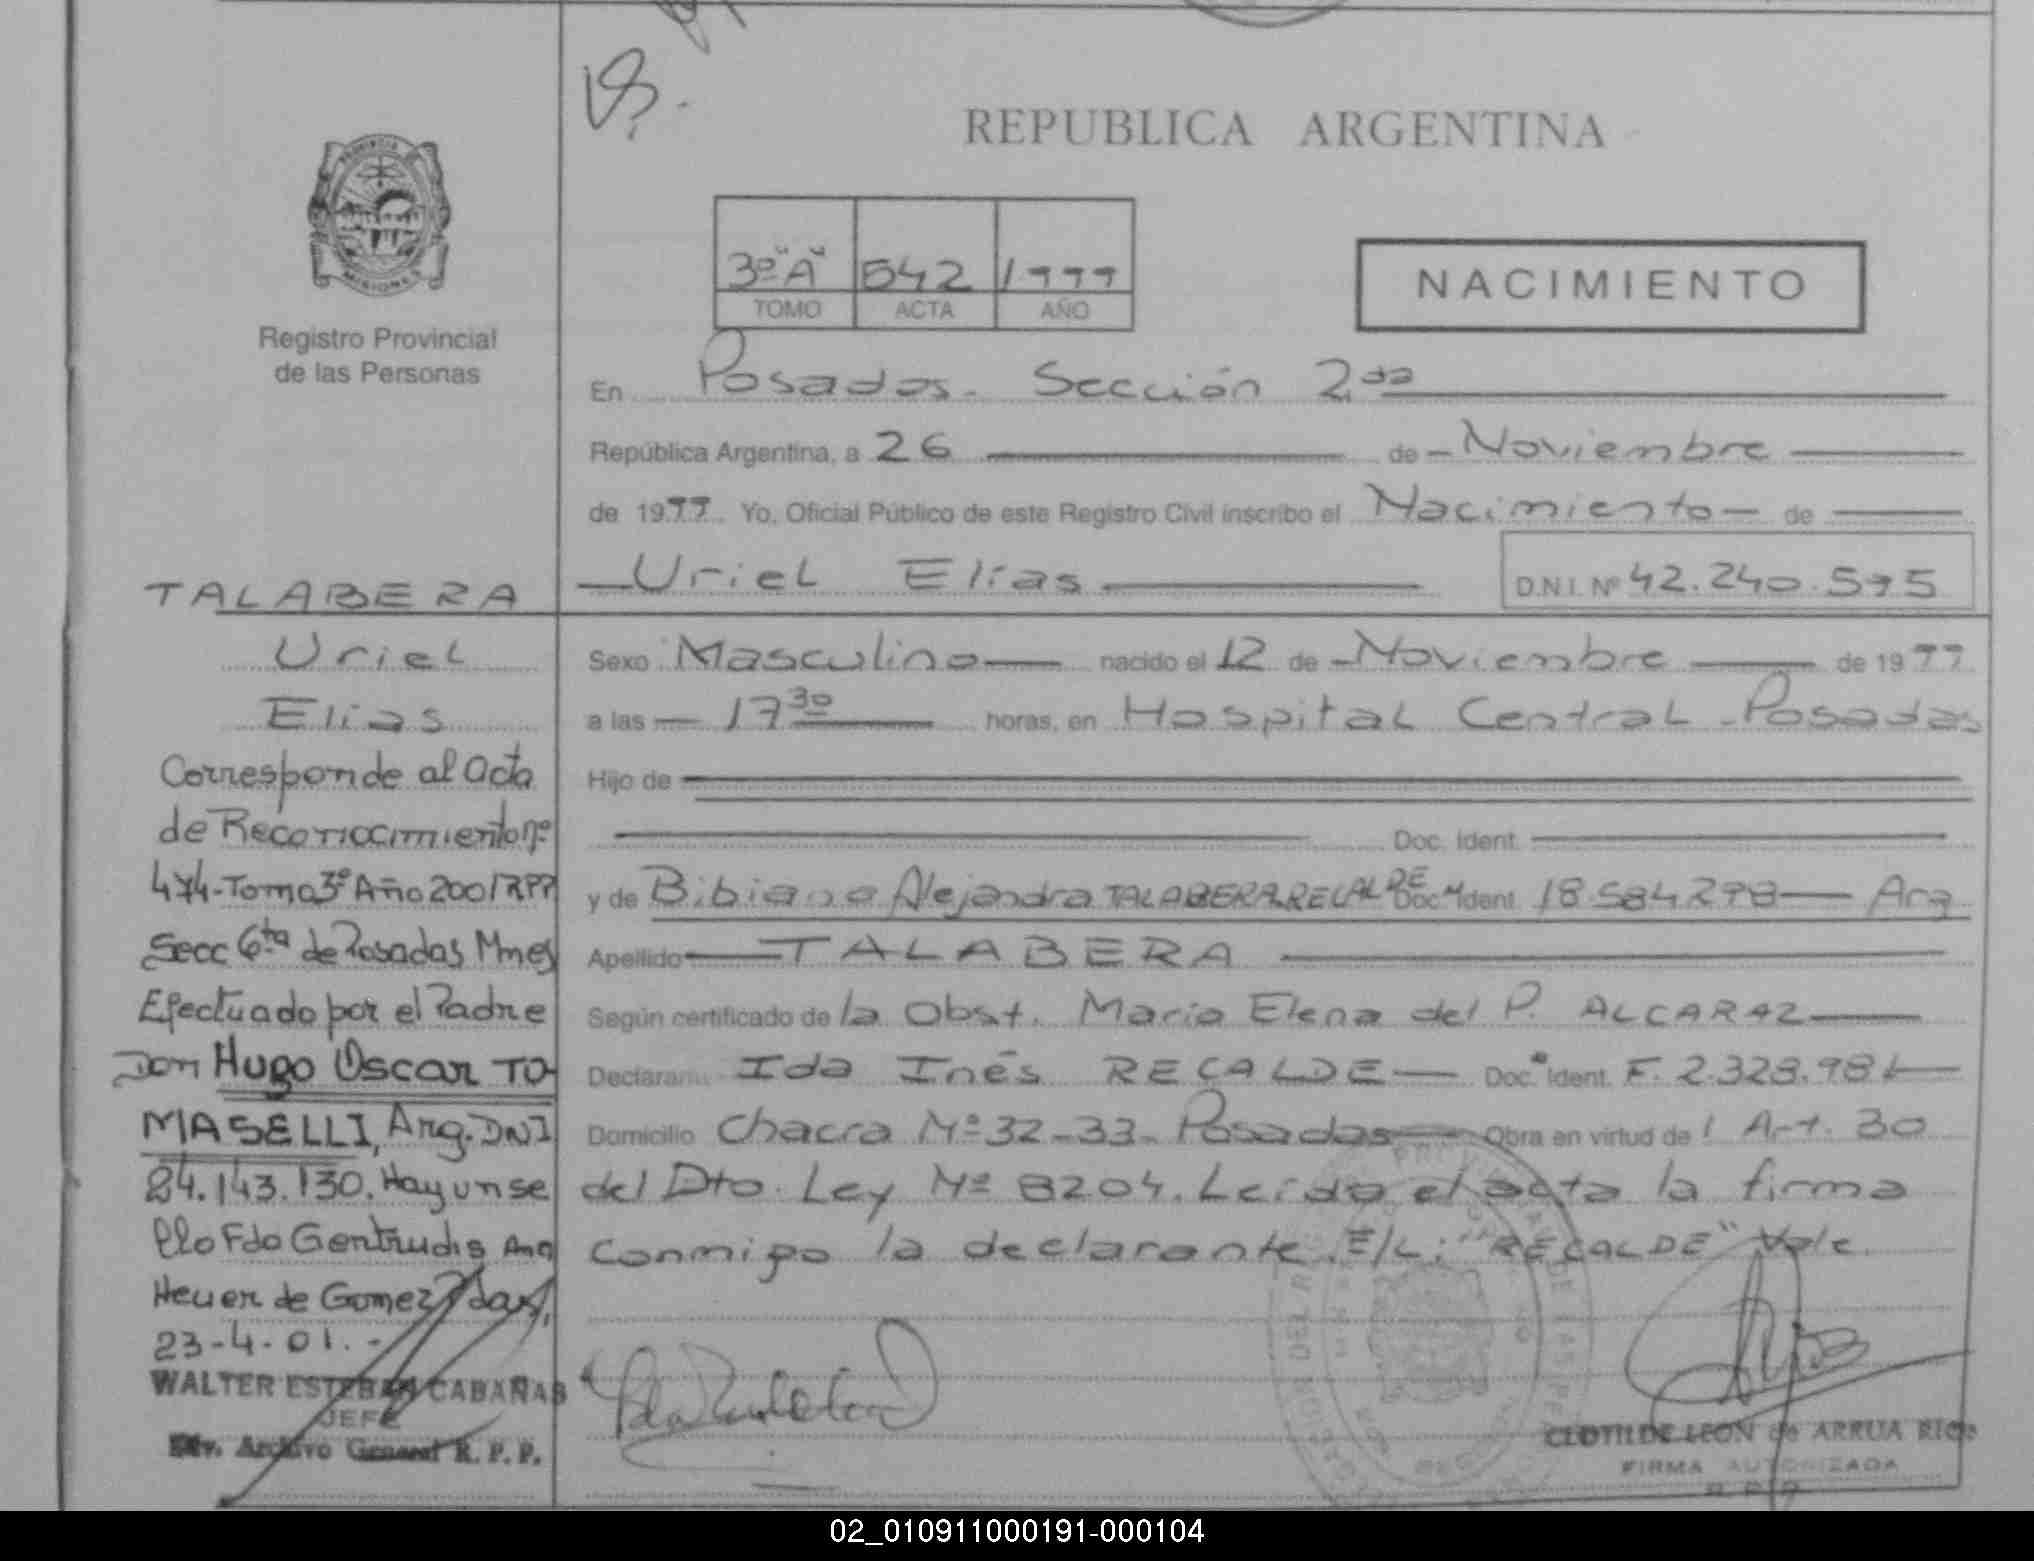 REPUBLICA ARGENTINA
PROVINCIA
MISIONES
Registro Provincial
de las Personas
3º "A" 542 1999
TOMO ACTA AÑO
NACIMIENTO
En Posadas - Sección 2da
República Argentina, a 26 de Noviembre
de 1999 Yo, Oficial Público de este Registro Civil inscribo el Nacimiento de
Uriel Elías D.N.I. Nº 42.240.595
TALABERA
Uriel
Elías
Corresponde al Acta
de Reconocimiento nº
474-Tomo 3º Año 2001 RPP
Secc 6ta de Posadas Mnes
Efectuado por el Padre
Don Hugo Oscar TO-
MASELLI, Arg. DNI
24.143.130. Hay un se
llo Fdo Gentrudis Ana
Heuer de Gomez Pdas,
23-4-01.-
WALTER ESTEBAN CABAÑAS
JEFE
Div. Archivo General R. P. P.
Sexo Masculino nacido el 12 de Noviembre de 1999
a las 17 30 horas, en Hospital Central - Posadas
Hijo de
Doc. Ident.
y de Bibiana Alejandra TALABERA RECALDE Doc. Ident. 18.584.298 Arg
Apellido TALABERA
Según certificado de la Obst. María Elena del P. ALCARAZ
Declaran Ida Inés RECALDE Doc. Ident. F. 2.328.981
Domicilio Chacra Nº 32-33- Posadas Obra en virtud del Art. 30
del Dto. Ley Nº 8204. Leída el acta la firma
conmigo la declarante. E/L: "RECALDE" Vale.
CLOTILDE LEON de ARRUA RIOS
FIRMA AUTORIZADA
R. P. P.
02_010911000191-000104